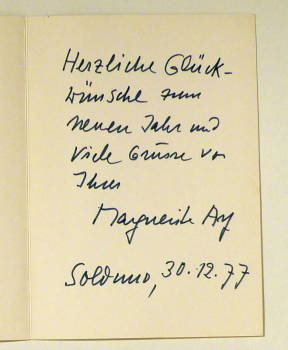 Herzliche Glück-
wünsche zum
neuen Jahr und
viele Grüsse von
Ihrer
Marguerite Ary
Solduno, 30.12.77